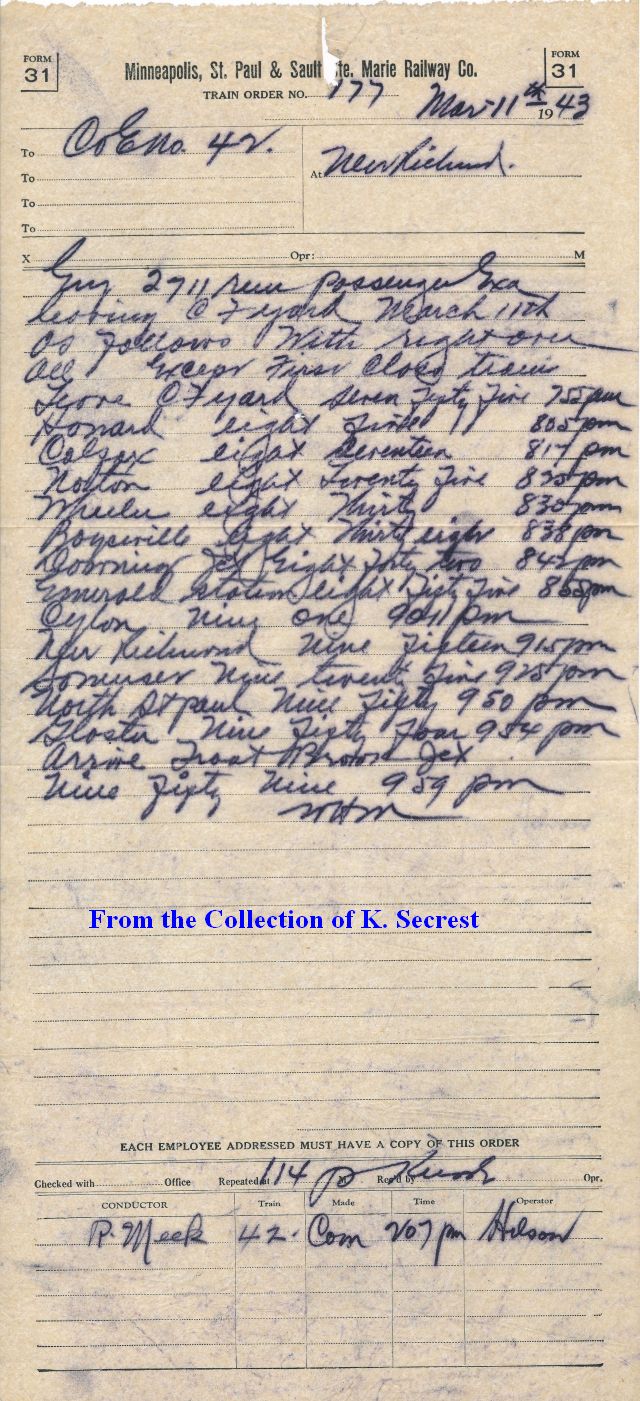 FORM 31
Minneapolis, St. Paul & Sault Ste. Marie Railway Co.
FORM 31
TRAIN ORDER NO. 177
Mar 11th 1943
To C&E No. 42.
At New Richmond.
To
To
To
X Opr: M
Eng 2711 run passenger Exa
leaving C F yard March 11th
as follows With right over
all Except First Class trains
Leave C F yard Seven Fifty Five 755 pm
Howard eight Five 805 pm
Colfax eight Seventeen 817 pm
Norton eight Twenty Five 825 pm
Wheeler eight Thirty 830 pm
Boyceville eight Thirty eight 838 pm
Downing Jct Eight Forty two 842 pm
Emerald station eight Fifty Five 855 pm
Cylon Nine one 901 pm
New Richmond Nine Fifteen 915 pm
Somerset Nine twenty Five 925 pm
North St paul Nine Fifty 950 pm
Gloster Nine Fifty Four 954 pm
Arrive Trout Brook Jct
Nine Fifty Nine 959 pm
WHM
From the Collection of K. Secrest
EACH EMPLOYEE ADDRESSED MUST HAVE A COPY OF THIS ORDER
Checked with Office Repeated at 114 p M Rec'd by Opr.
CONDUCTOR Train Made Time Operator
R. Meek 42. Com 207 pm